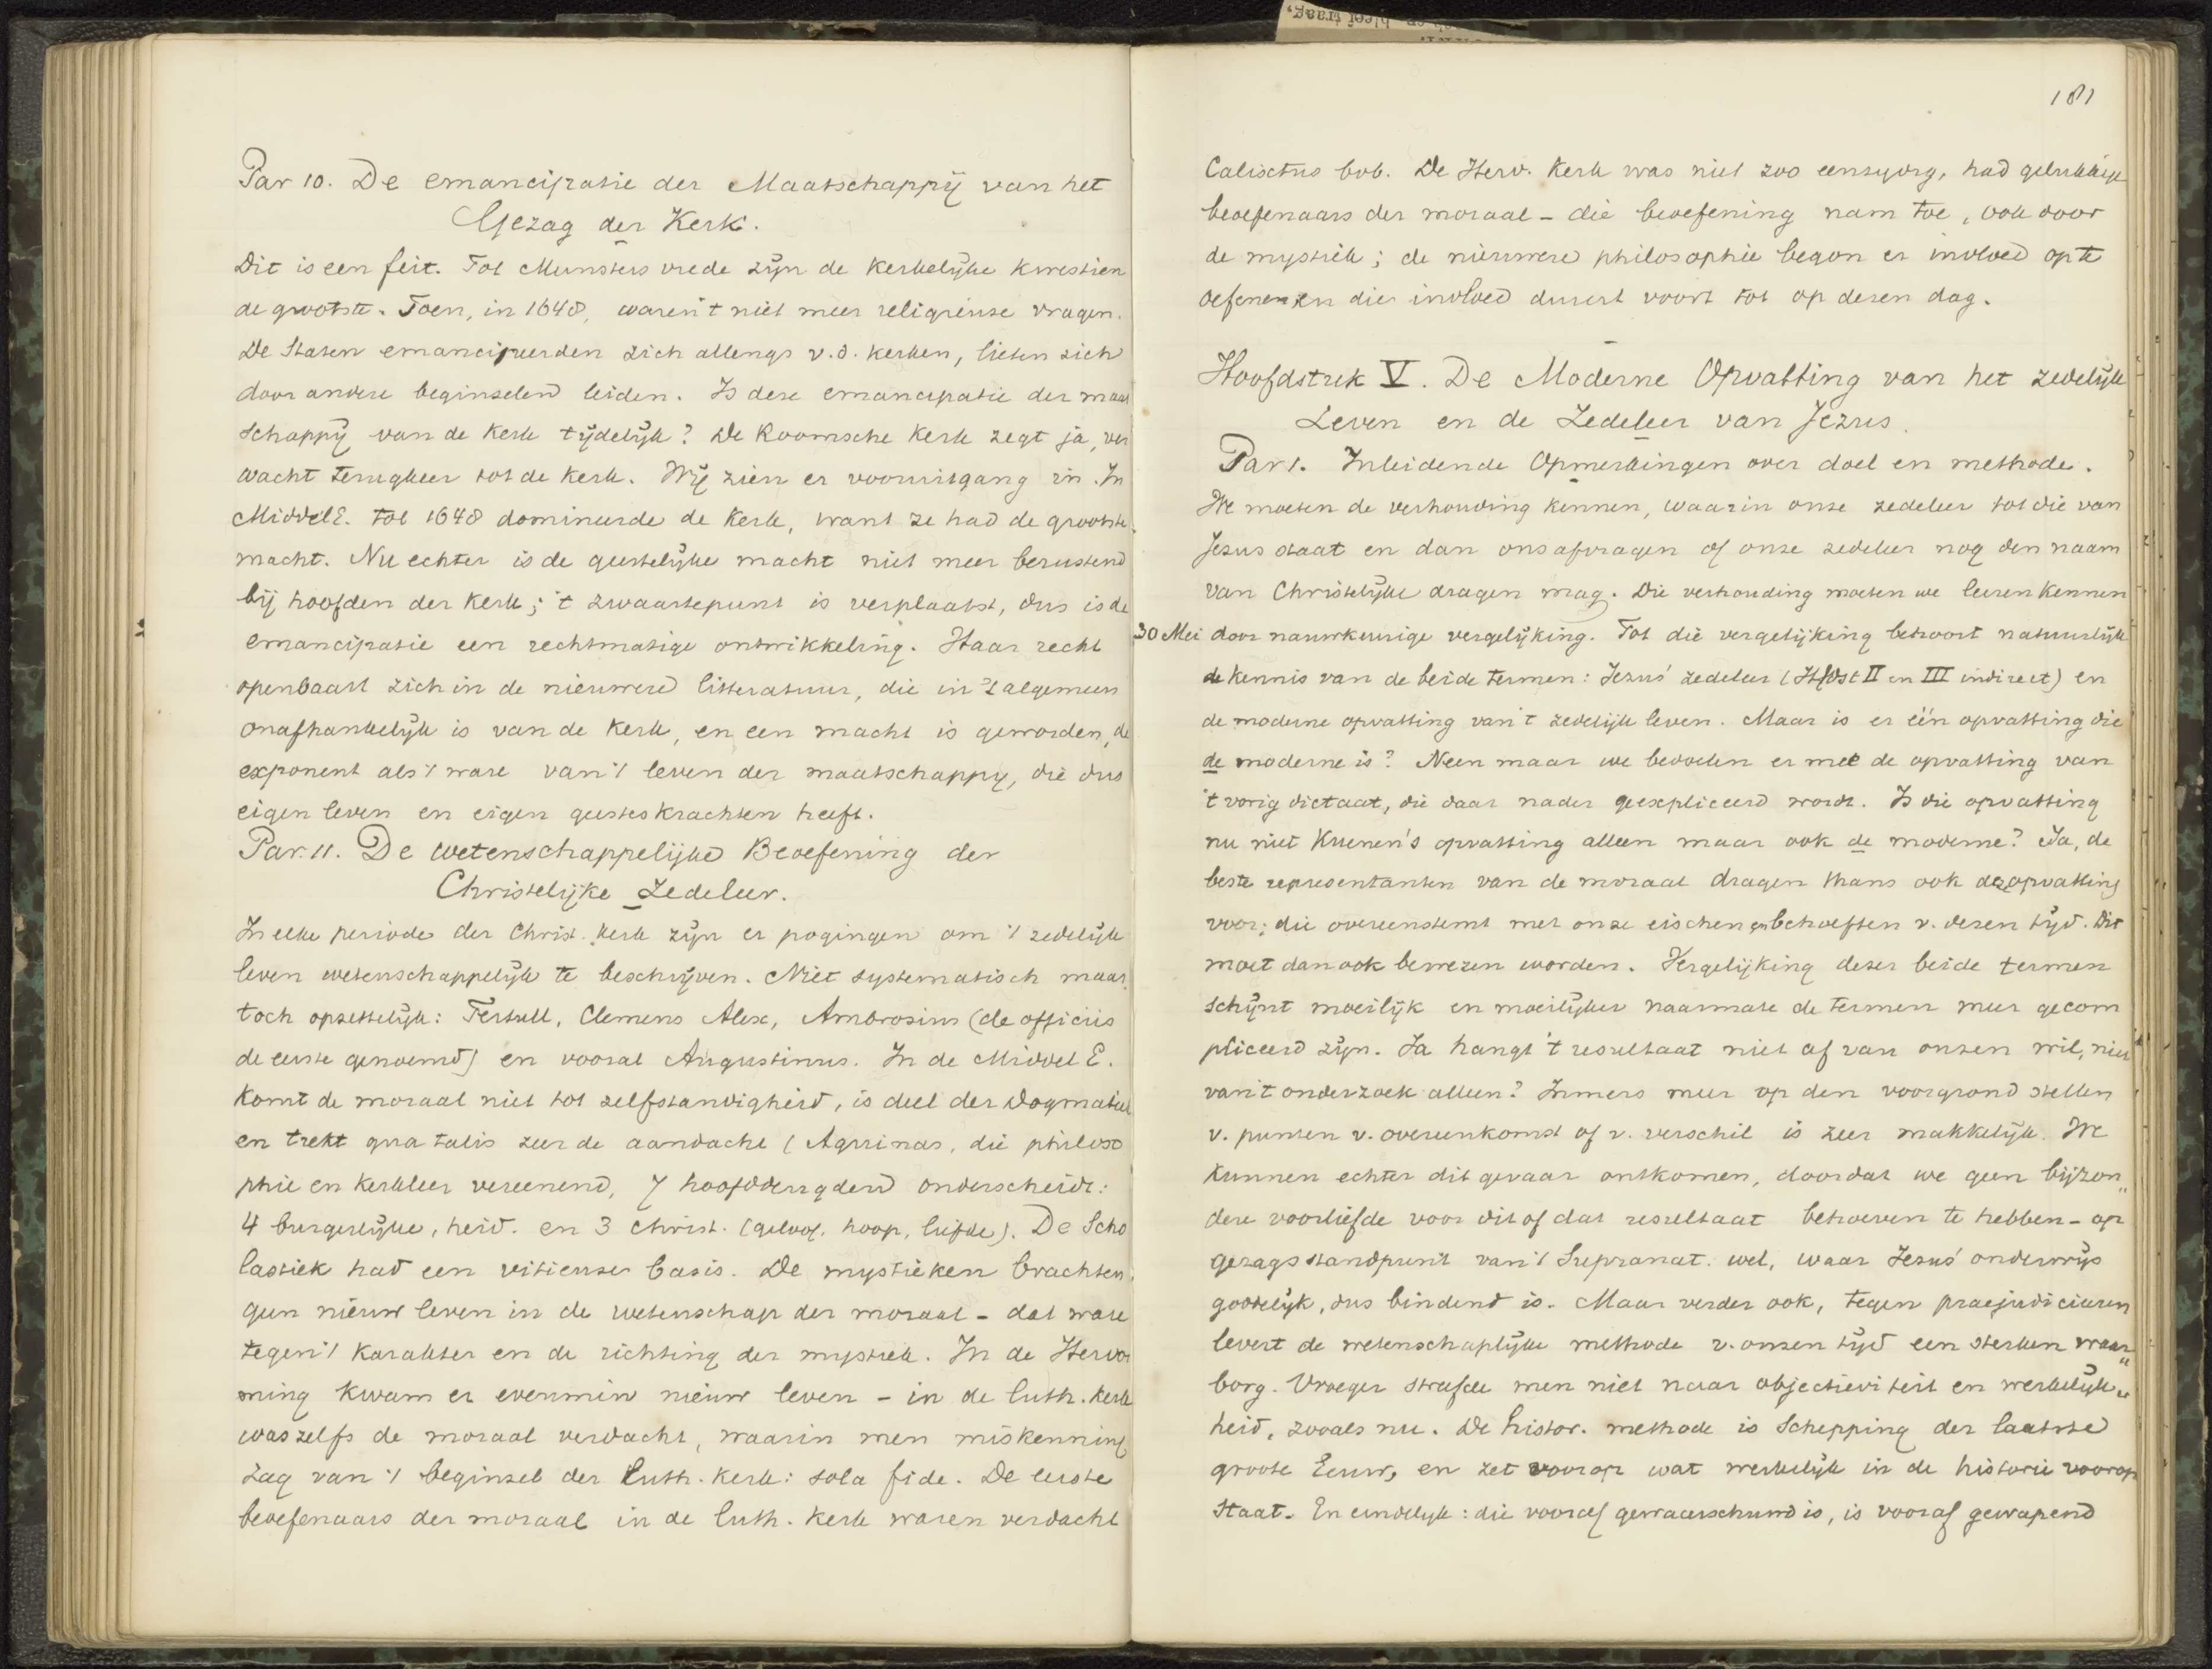 Par 10. De emancipatie der Maatschappij van het
Gezag der Kerk.
Dit is een feit. Tot Munsters vrede zijn de kerkelijke kwestien
de grootste. Toen, in 1648, waren 't niet meer religieuse vragen.
De Staten emancipeerden zich allengs v.d. kerken, lieten zich
door andere beginselen leiden. Is deze emancipatie der maat
schappij van de kerk tijdelijk? De Roomsche kerk zegt ja, ver
wacht terugkeer tot de kerk. Wij zien er vooruitgang in. In
MiddelE. tot 1648 domineerde de kerk, want ze had de grootste
macht. Nu echter is de geestelijke macht niet meer berustend
bij hoofden der kerk; 't zwaartepunt is verplaatst, dus is de
emancipatie een rechtmatige ontwikkeling. Haar recht
openbaart zich in de nieuwere litteratuur, die in 't algemeen
onafhankelijk is van de kerk, en een macht is geworden, de
exponent als 't ware van 't leven der maatschappy, die dus
eigen leven en eigen geesteskrachten heeft.
Par. 11. De wetenschappelijke Beoefening der
Christelijke Zedeleer.
In elke periode der Christ. kerk zijn er pogingen om 't zedelijk
leven wetenschappelijk te beschrijven. Niet systematisch maar
toch opzettelijk: Tertull, Clemens Alex, Ambrosius (de officiis
de eerste genoemd) en vooral Augustinus. In de Middel E.
komt de moraal niet tot zelfstandigheid, is deel der Dogmatiek
en trekt qua talis zeer de aandacht (Aquinas, die philoso
phie en kerkleer vereenend, 7 hoofddeugden onderscheidt:
4 burgerlijke, heid. en 3 Christ. (geloof, hoop, liefde). De Scho
lastiek had een vitieuse basis. De mystieken brachten
geen nieuw leven in de wetenschap der moraal - dat ware
tegen 't karakter en de richting der mystiek. In de Hervor
ming kwam er evenmin nieuw leven - in de luth. kerk
was zelfs de moraal verdacht, waarin men miskenning
zag van 't beginsel der Luth. kerk: sola fide. De eerste
beoefenaars der moraal in de luth. kerk waren verdacht
181
Calixtus bvb. De Herv. Kerk was niet zoo eenzydig, had gelukkige
beoefenaars der moraal - die beoefening nam toe, ook door
de mystiek; de nieuwere philosophie begon er invloed op te
oefenen en die invloed duurt voort tot op dezen dag.
Hoofdstuk V. De Moderne Opvatting van het zedelijk
Leven en de Zedeleer van Jezus.
Par 1. Inleidende Opmerkingen over doel en methode.
We moeten de verhouding kennen, waarin onze zedeleer tot die van
Jezus staat en dan ons afvragen of onze zedeleer nog den naam
van Christelijke dragen mag. Die verhouding moeten we leeren kennen
30 Mei door nauwkeurige vergelijking. Tot die vergelijking behoort natuurlijk
de kennis van de beide termen: Jezus' zedeleer (Hfdst II en III indirect) en
de moderne opvatting van 't zedelijk leven. Maar is er één opvatting die
de moderne is? Neen maar we bedoelen er mee de opvatting van
't vorig dictaat, die daar nader geexpliceerd wordt. Is die opvatting
nu niet Kuenen's opvatting alleen maar ook de moderne? Ja, de
beste representanten van de moraal dragen thans ook deze opvatting
voor; die overeenstemt met onze eischen en behoeften v. dezen tijd. Dit
moet dan ook bewezen worden. Vergelijking dezer beide termen
schijnt moeilijk en moeilijker naarmate de termen meer gecom
pliceerd zijn. Ja hangt 't resultaat niet af van onzen wil, niet
van 't onderzoek alleen? Immers meer op den voorgrond stellen
v. punten v. overeenkomst of v. verschil is zeer makkelijk. We
kunnen echter dit gevaar ontkomen, doordat we geen bijzon„
dere voorliefde voor dit of dat resultaat behoeven te hebben - op
gezagsstandpunt van 't Supranat. wel, waar Jezus' onderwijs
goddelijk, dus bindend is. Maar verder ook, tegen praejudicieeren
levert de wetenschaplijke methode v. onzen tijd een sterken waar„
borg. Vroeger strafde men niet naar objectiviteit en werkelijk„
heid, zooals nu. De histor. methode is Schepping der laatste
groote Eeuw, en zet voorop wat werkelijk in de historie voorop
staat. En eindelijk: die vooraf gewaarschuwd is, is vooraf gewapend